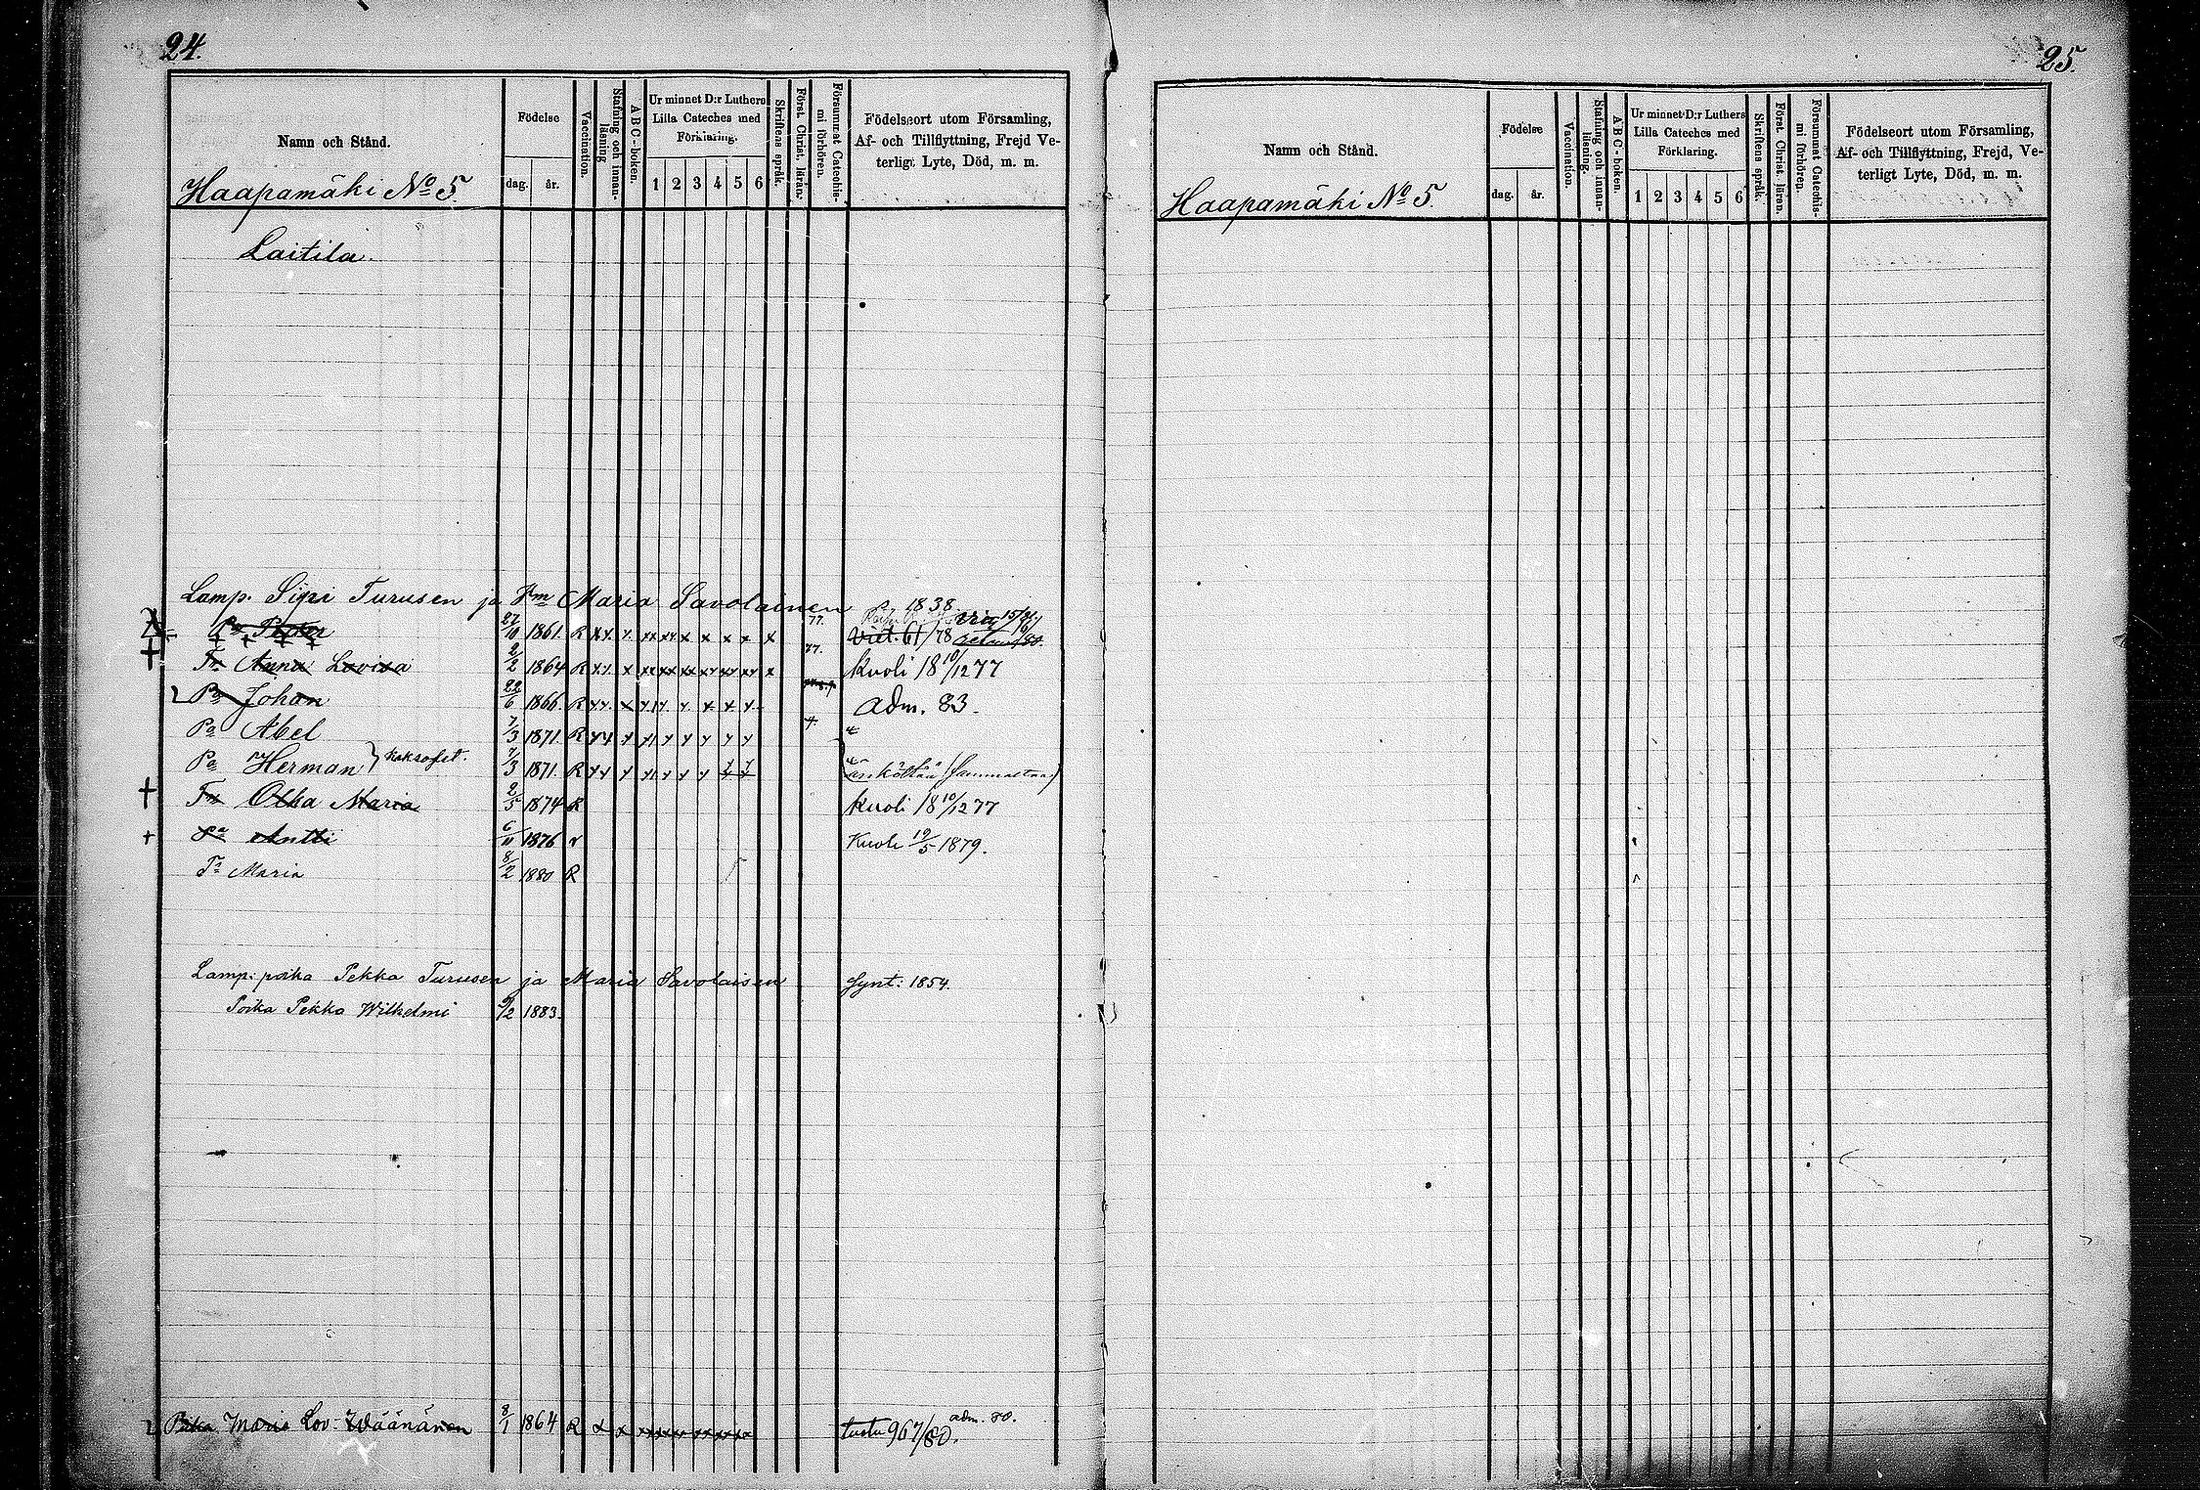 24.
Namn och Stånd.
Födelse
dag.
år.
Vaccination.
Stafning och innan-läsning
ABC-boken.
Ur minnet D:r Luthers
Lilla Cateches med
Förklaring.
1 2 3 4 5 6
Skriftens språk.
Först. Christ. läran.
Försummat Catechis-
mi förhören.
Födelseort utom Församling,
Af- och Tillflyttning, Frejd Ve-
terligt Lyte, Död, m. m.
Haapamäki No 5.
Laitila.
Lamp. Sipi Turusen ja Vm Maria Savolainen 1838
Pa Pekka 27/10 1861. R 77. 61/78
Tr Anna Lovisa 2/2 1864 R 77. Kuoli 18 10/12 77
Pa Johan 22/6 1866. R adm. 83.
Pa Abel 7/3 1871. R
Pa Herman } kaksoset. 7/3 1871. R änkkttää (sammaltaa)
Tr Olka Maria 2/5 1874 R Kuoli 18 10/12 77
Pa Antti 6/11 1876 r Kuoli 19/5 1879.
Tr Maria 8/2 1880 R
Lamp: poika Pekka Turusen ja Maria Savolaisen Synt: 1854.
Poika Pekka Wilhelmi 9/2 1883.
Maria Lov. Wäänänen 8/1 1864 R 967/80. adm. 80.
25.
Namn och Stånd.
Födelse
dag.
år.
Vaccination.
Stafning och innan-läsning.
ABC-boken.
Ur minnet D:r Luthers
Lilla Cateches med
Förklaring.
1 2 3 4 5 6
Skriftens språk.
Först. Christ. läran.
Försummat Catechis-
mi förhören.
Födelseort utom Församling,
Af- och Tillflyttning, Frejd, Ve-
terligt Lyte, Död, m. m.
Haapamäki No 5.